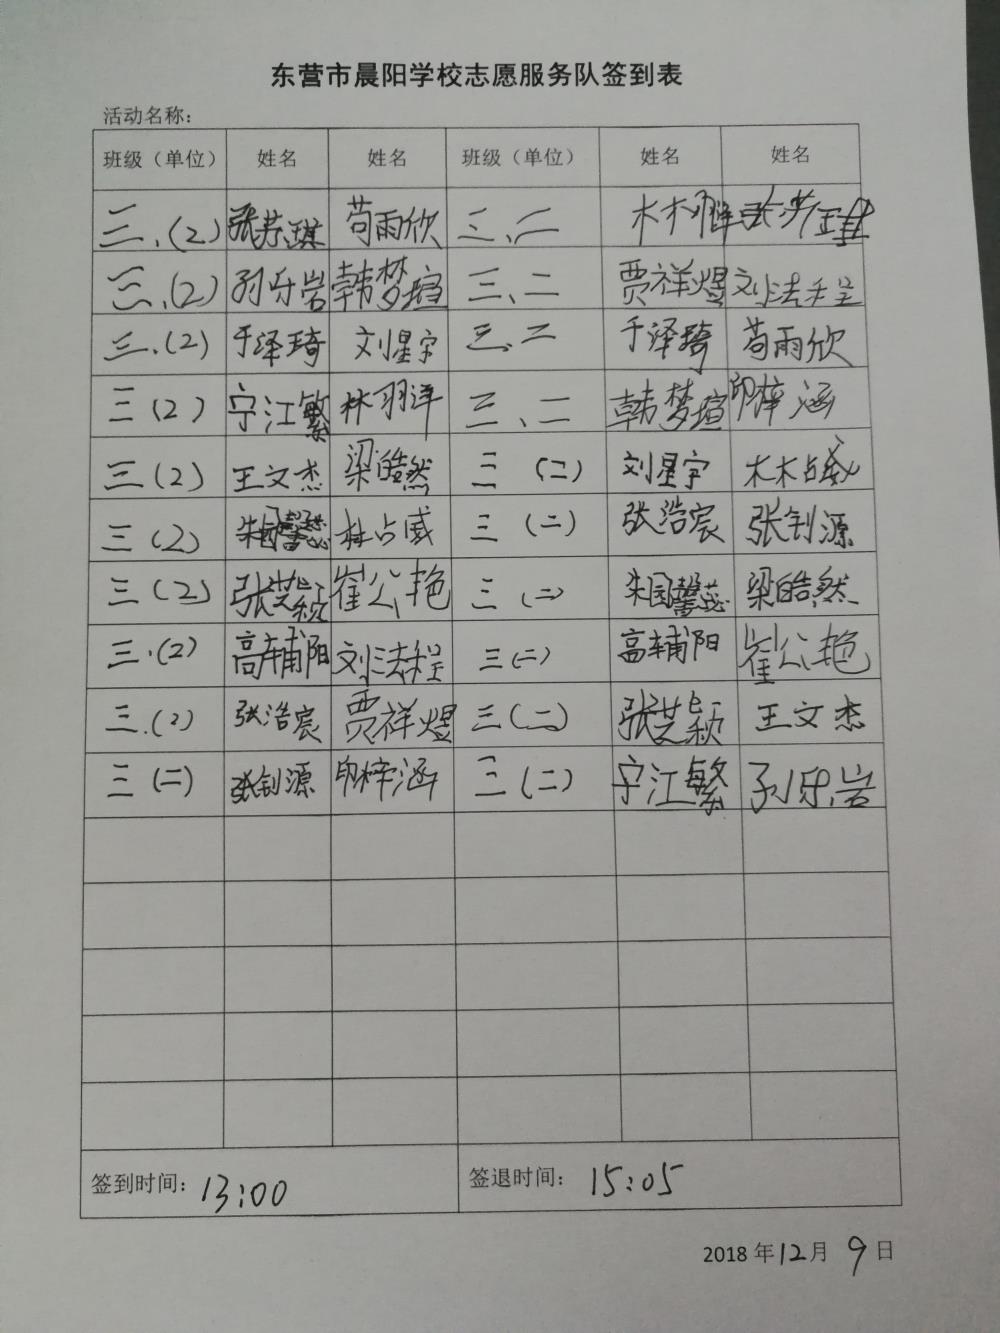 东营市晨阳学校志愿服务队签到表
活动名称：
班级（单位） 姓名 姓名 班级（单位） 姓名 姓名
三、(2) 张芸琪 苟雨欣 三、二 林羽洋
三、(2) 孙乐岩 韩梦瑄 三、二 贾祥煜 刘法程
三.(2) 于泽琦 刘星宇 三、二 于泽琦 苟雨欣
三(2) 宁江繁 林羽洋 三、二 韩梦瑄 印梓涵
三(2) 王文杰 梁皓然 三(二) 刘星宇 林占威
三(2) 朱园馨蕊 林占威 三(二) 张浩宸 张钊源
三(2) 张芷颖 崔公艳 三(二) 朱园馨蕊 梁皓然
三.(2) 高辅阳 刘法程 三(二) 高辅阳 崔公艳
三.(2) 张浩宸 贾祥煜 三(二) 张芷颖 王文杰
三(二) 张钊源 印梓涵 三(二) 宁江繁 孙乐岩
签到时间：13:00 签退时间：15:05
2018年12月9日